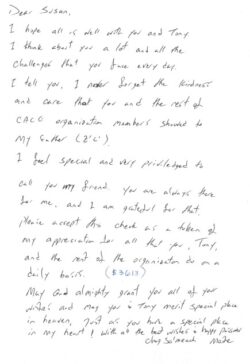 Dear Susan,
I hope all is well with you and Tony
I think about you a lot and all the
challenges that you face every day.
I tell you, I never forget the kindness
and care that you and the rest of
CALC organization members showed to
my father (Z'L').
I feel special and very privileged to
call you my friend. You are always there
for me, and I am grateful for that.
Please accept this check as a token of
my appreciation for all that you, Tony,
and the rest of the organization do on a
daily basis. ($3613)
May God almighty grant you all of your
wishes and may you & Tony merit special place
in heaven, just as you have a special place
in my heart! with all the best wishes & happy
Chag Sameach